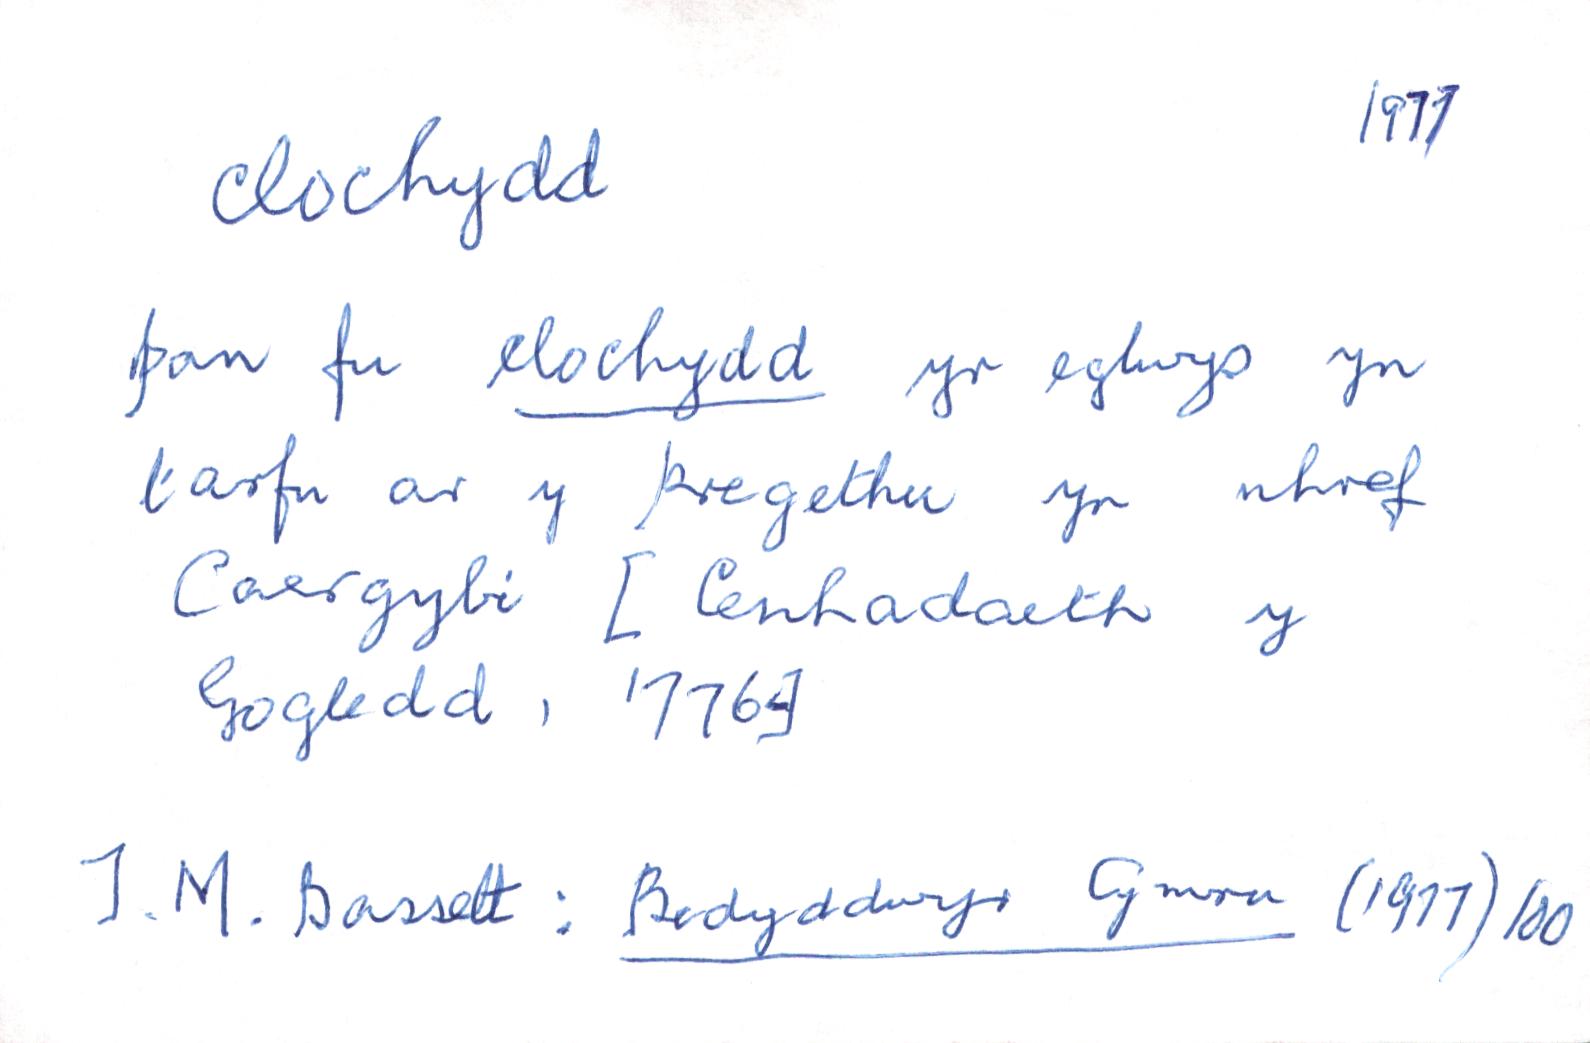 1977
clochydd
pan fu clochydd yr eglwys yn
tarfu ar y pregethu yn nhref
Caergybi [Cenhadaeth y
Gogledd, 1776]
T.M. Bassett: Bedyddwyr Cymru (1977) 100